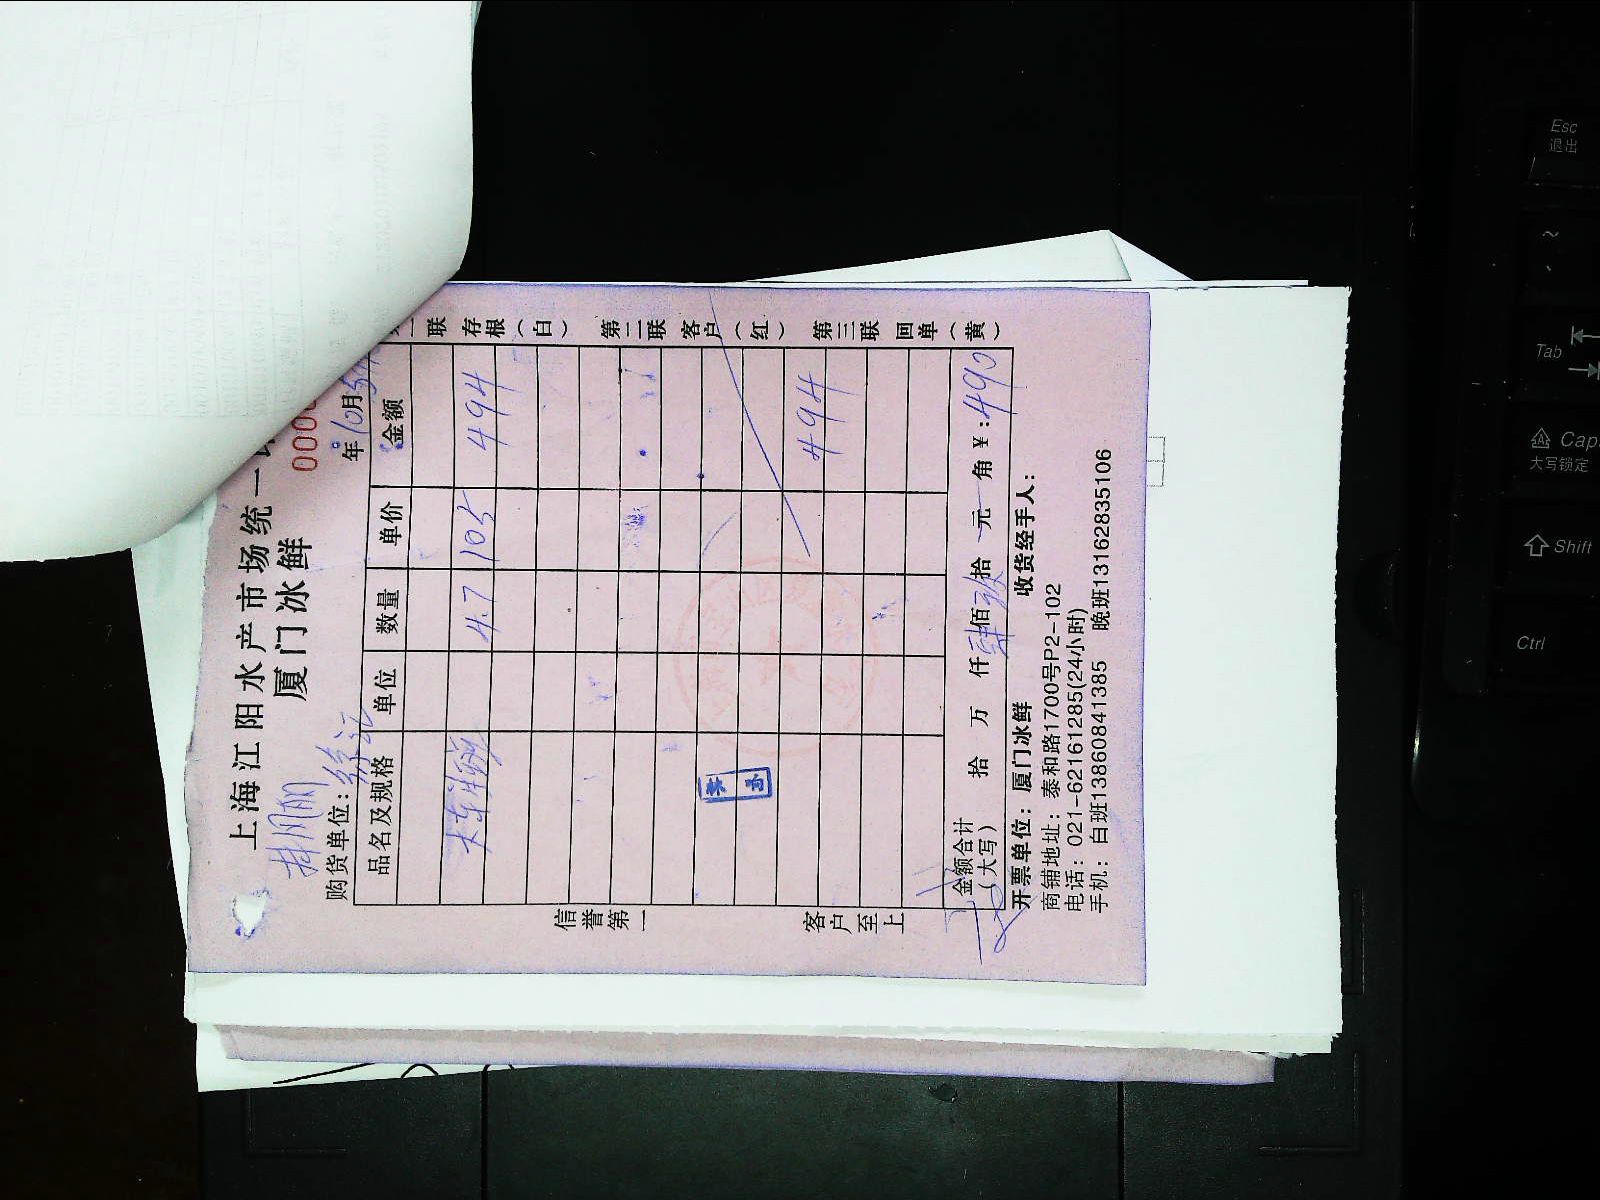 上海江阳水产市场统一
厦门冰鲜
0000
年10月5
购货单位：徐汇
品名及规格 单位 数量 单价 金额
4.7 105 494
494
金额合计（大写） 拾 万 仟 肆佰 玖拾 元 角 ￥:490
开票单位：厦门冰鲜 收货经手人：
商铺地址：泰和路1700号P2-102
电话：021-62161285(24小时)
手机：白班13860841385 晚班13162835106
联 存根（白） 第二联 客户（红） 第三联 回单（黄）
信誉第一 客户至上
Esc
退出
~
Tab
Cap
大写锁定
Shift
Ctrl